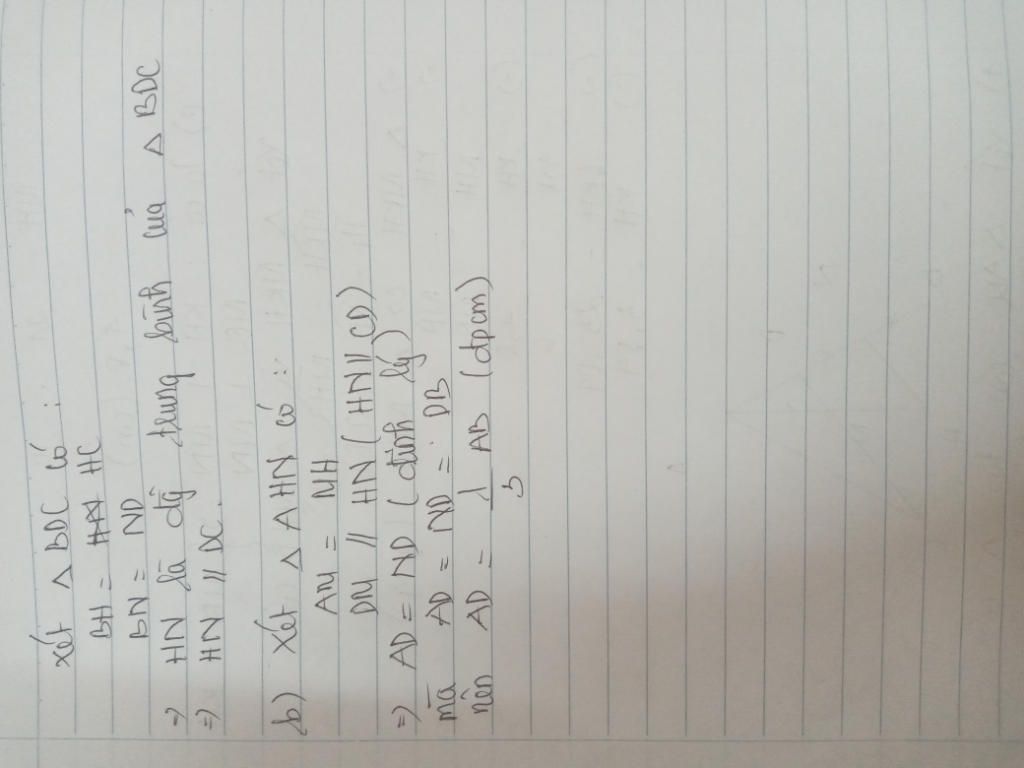 xét △ BDC có :
BH = HN HC
BN = ND
=> HN là đg̃ trung bình của △ BDC
=> HN // DC.
b) Xét △ AHN có :
AM = MH
DM // HN ( HN // CD)
=> AD = ND ( định lý )
mà AD = ND = DB
nên AD = 1/3 AB (đpcm)